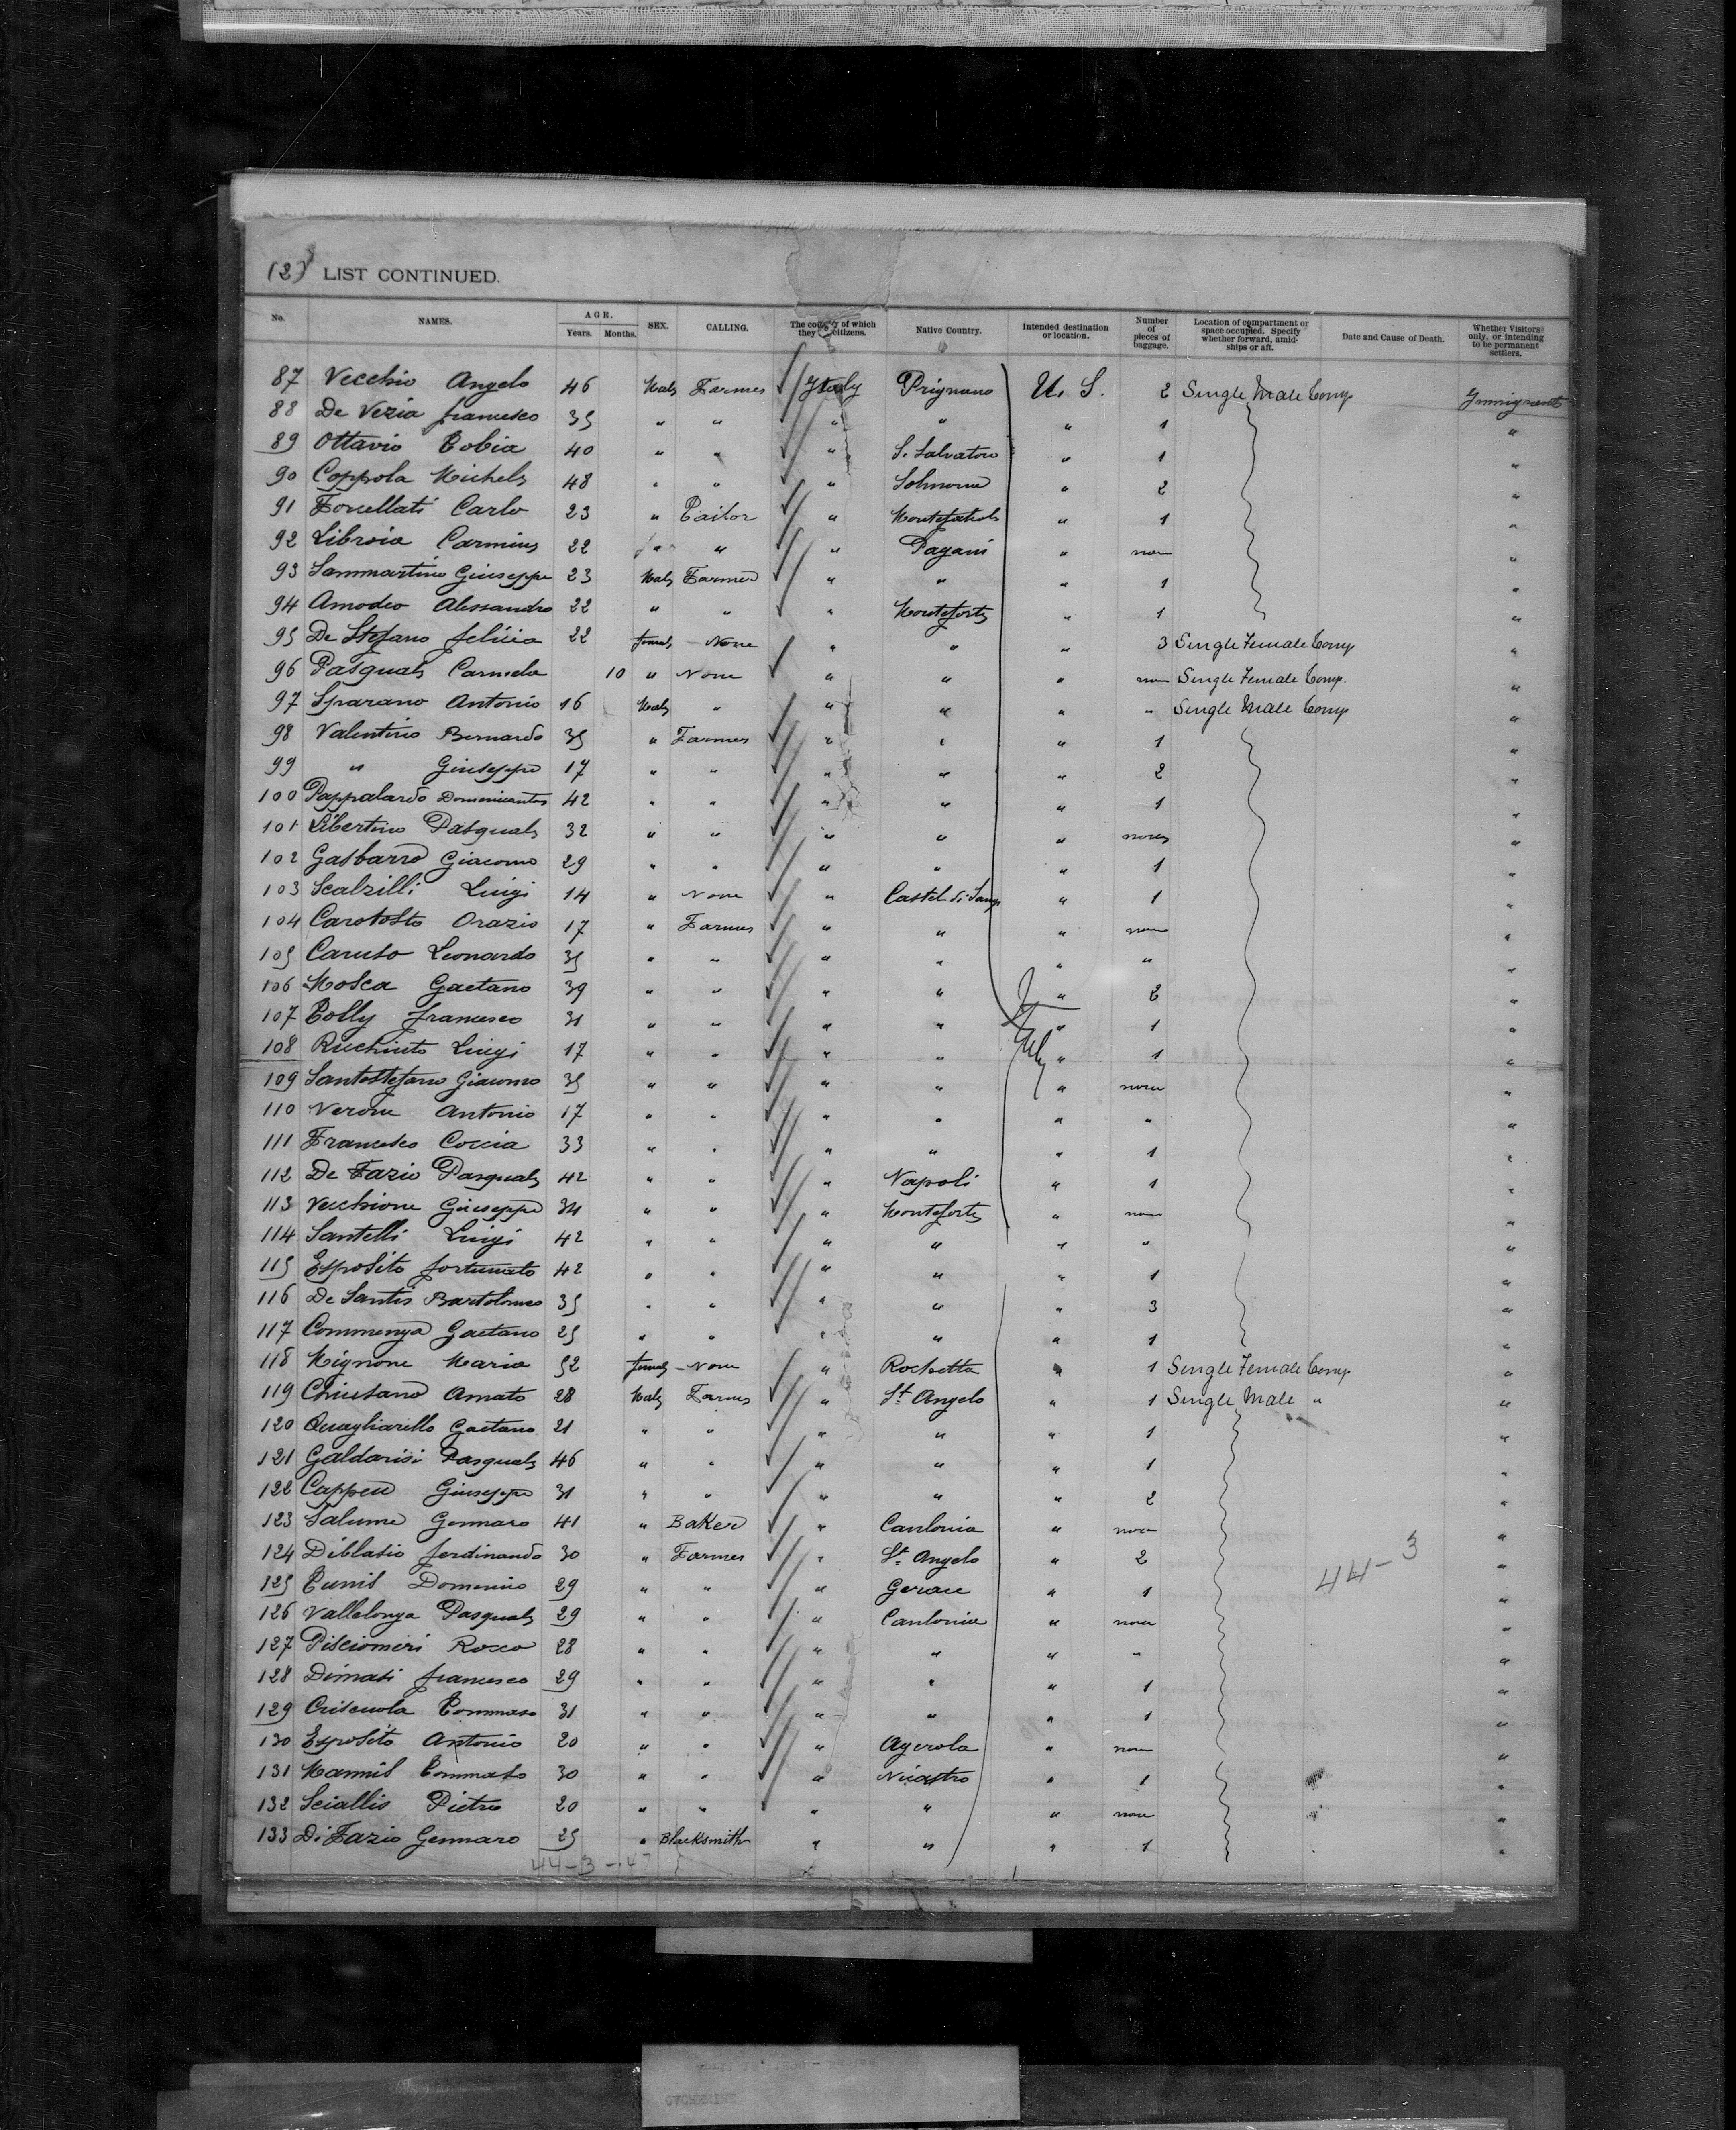 (2) LIST CONTINUED.
No. NAMES. AGE. Years. Months. SEX. CALLING. The country of which they citizens. Native Country. Intended destination or location. Number of pieces of baggage. Location of compartment or space occupied. Specify whether forward, amidships or aft. Date and Cause of Death. Whether Visitors only, or intending to be permanent settlers.
87 Vecchio Angelo 46 Male Farmer Italy Prignano U. S. 2 Single Male Comp Immigrant
88 De Vezia francesco 35 " " " " " 1 "
89 Ottavio Tobia 40 " " " S. Salvatore " 1 "
90 Coppola Michele 48 " " " " 2 "
91 Carlo 23 " Tailor " " 1 "
92 Libroia Carmine 22 " " " Pagani " none "
93 Sammartino Giuseppe 23 Male Farmer " " " 1 "
94 Amodeo Alessandro 22 " " " Monteforte " 1 "
95 De Stefano felicia 22 female None " " " 3 Single Female Comp "
96 Pasquale Carmela 10 " None " " " none Single Female Comp. "
97 Sparano Antonio 16 Male " " " " " Single Male Comp "
98 Valentino Bernardo 35 " Farmer " " " 1 "
99 " Giuseppe 17 " " " " " 2 "
100 Pappalardo 42 " " " " " 1 "
101 Libertino Pasquale 32 " " " " " none "
102 Gasbarro Giacomo 29 " " " " " 1 "
103 Scalzilli Luigi 14 " None " Castel di Sang " 1 "
104 Carotosto Orazio 17 " Farmer " " " none "
105 Caruso Leonardo 35 " " " " " " "
106 Mosca Gaetano 39 " " " " " 2 "
107 Tolly francesco 31 " " " " " 1 "
108 Ruchiuto Luigi 17 " " " " " 1 "
109 Santostefano Giacomo 35 " " " " " none "
110 Verone Antonio 17 " " " " " " "
111 Francesco Coccia 33 " " " " " 1 "
112 De Fazio Pasquale 42 " " " Napoli " 1 "
113 Vecchione Giuseppe 34 " " " Monteforte " none "
114 Santelli Luigi 42 " " " " " " "
115 Esposito fortunato 42 " " " " " 1 "
116 De Santis Bartolomeo 35 " " " " " 3 "
117 Gaetano 25 " " " " " 1 "
118 Mignone Maria 52 female None " Rochetta " 1 Single Female Comp "
119 Chiusano Amato 28 Male Farmer " St. Angelo " 1 Single Male " "
120 Quagliarillo Gaetano 21 " " " " " 1 "
121 Galdarisi Pasquale 46 " " " " " 1 "
122 Giuseppe 31 " " " " " 2 "
123 Salume Gennaro 41 " Baker " Caulonia " none "
124 Diblasio ferdinando 30 " Farmer " St. Angelo " 2 "
44-3
125 Domenico 29 " " " Gerace " 1 "
126 Vallelonga Pasquale 29 " " " Caulonia " none "
127 Pisciomeri Rocco 28 " " " " " " "
128 Dimasi francesco 29 " " " " " 1 "
129 Criscuola Tommaso 31 " " " " " 1 "
130 Esposito Antonio 20 " " " Agerola " none "
131 Tommaso 30 " " " Nicastro " 1 "
132 Sciallis Pietro 20 " " " " " none "
133 Di Fazio Gennaro 25 " Blacksmith " " " 1 "
44-3-